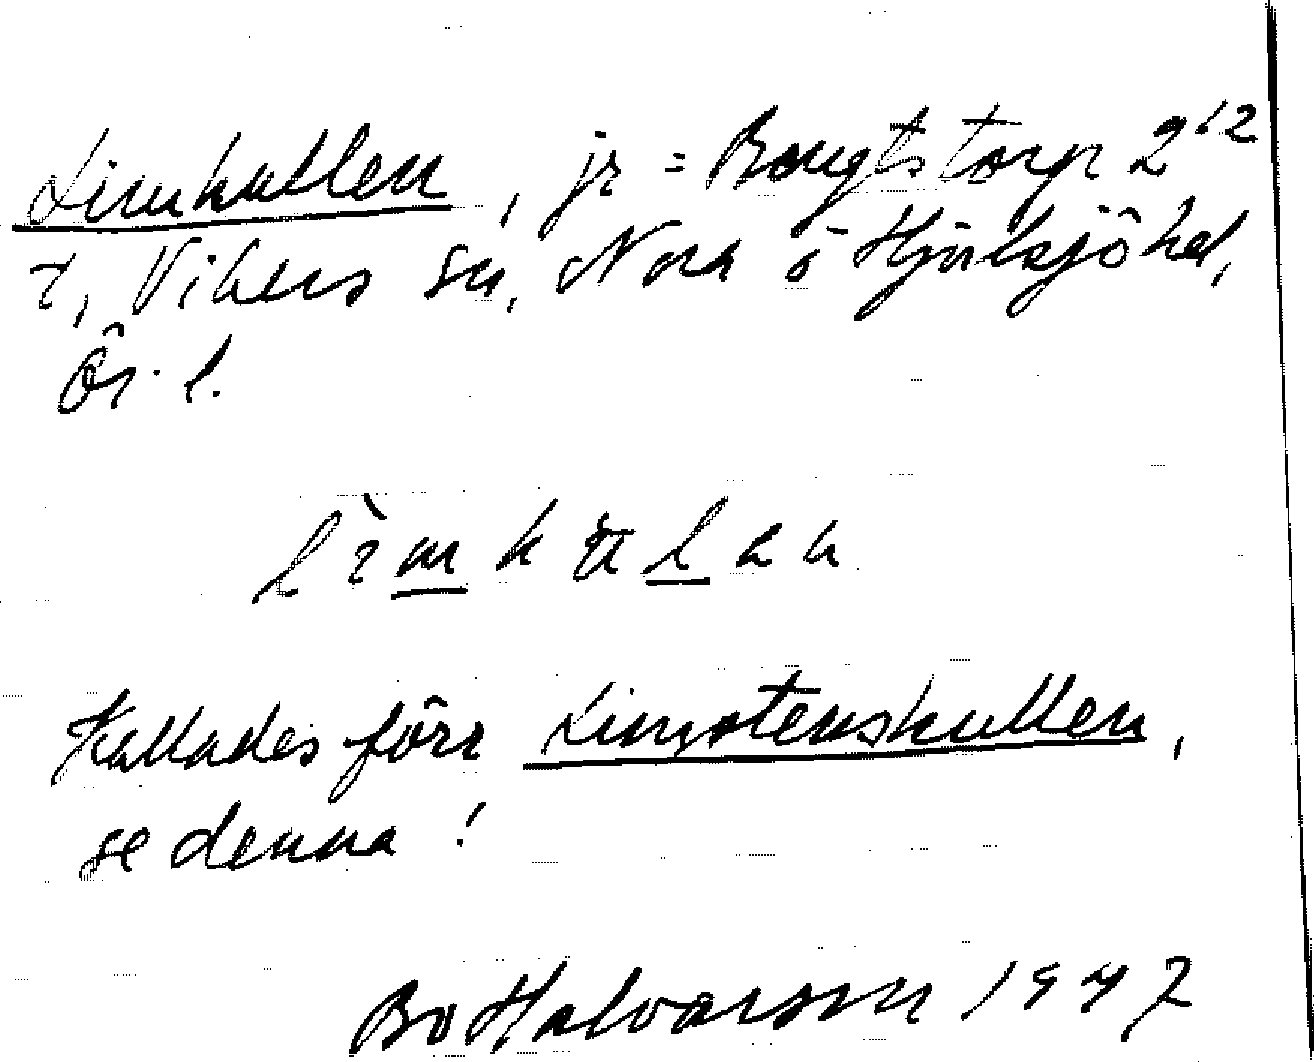 Limkullen, jr = Bengtstorp 2¹²
t, Vikers sn, Nora o Hjulsjö hd,
Ör. l.
lìmkulan
Kallades förr Limstenskullen,
se denna!
Bo Halvarson 1947